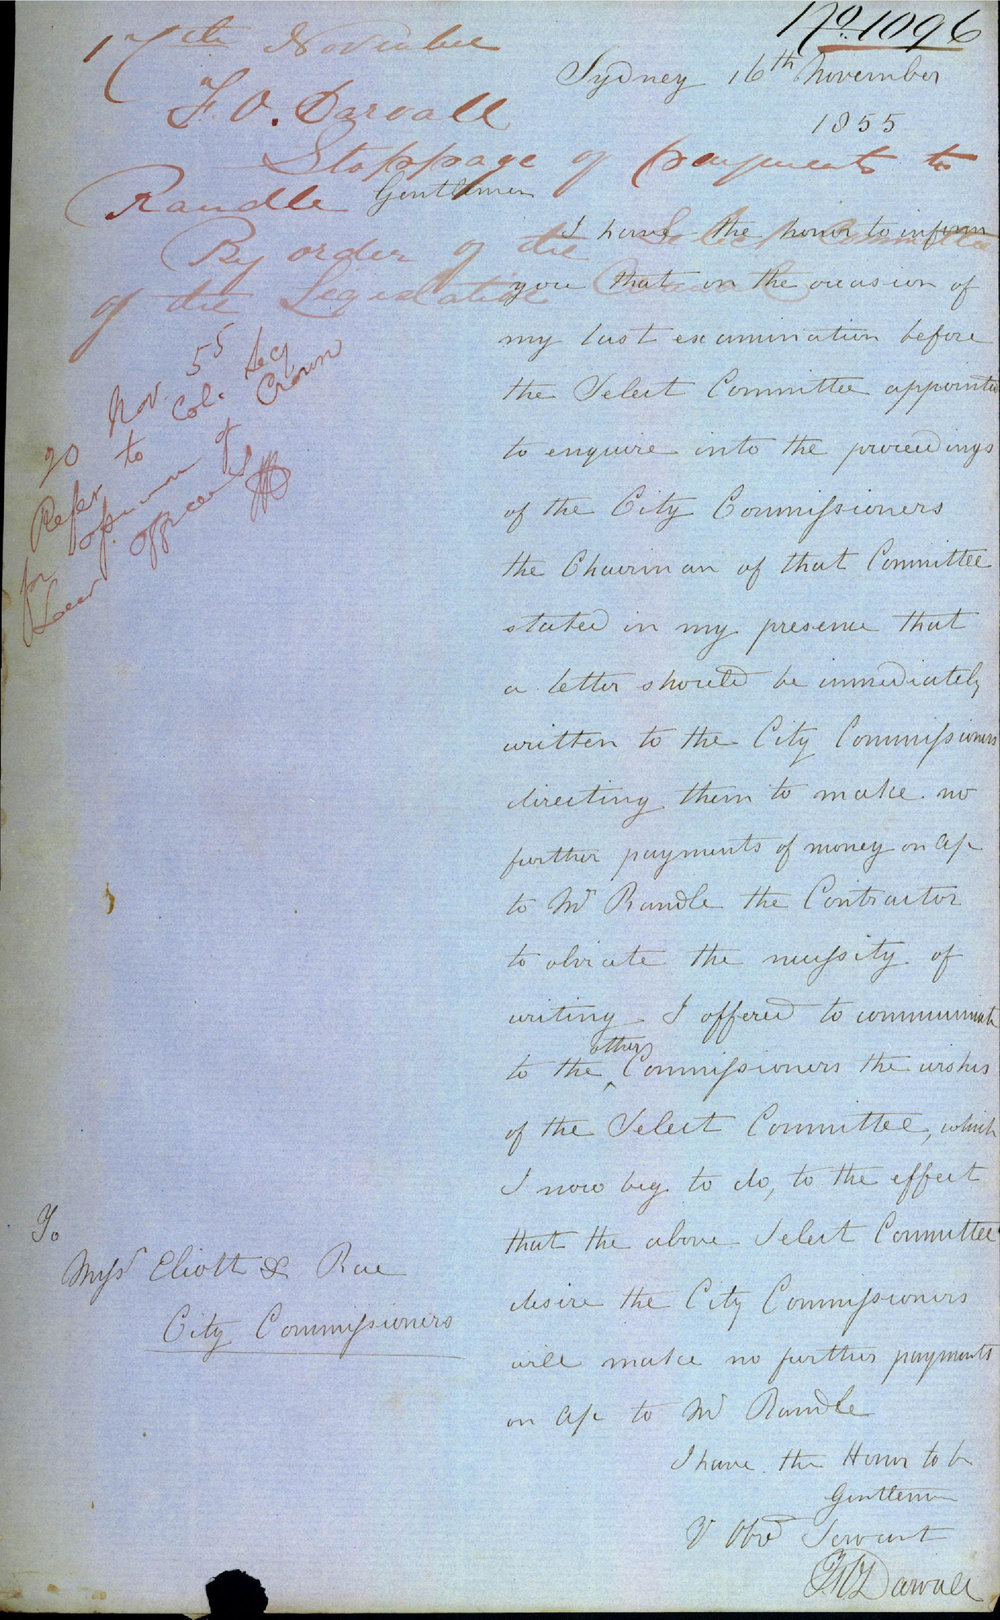 No. 1096
17th November
F. O. Darvall
Stoppage of payments to
Randle
By order of the Select Committee
of the Legislative Council
20 Nov. 55
Refer to Col. Secy
for opinion of Crown
Law Officers
Sydney 16th November
1855
Gentlemen
I have the honor to inform
you that on the occasion of
my last examination before
the Select Committee appointed
to enquire into the proceedings
of the City Commissioners
the Chairman of that Committee
stated in my presence that
a letter should be immediately
written to the City Commissioners
directing them to make no
further payments of money on a/c
to Mr Randle the Contractor
to obviate the necessity of
writing I offered to communicate
to the other Commissioners the wishes
of the Select Committee, which
I now beg to do, to the effect
that the above Select Committee
desire the City Commissioners
will make no further payments
on a/c to Mr Randle
I have the Honor to be
Gentlemen
Y Obed Servant
Darvall
To
Messrs Eliott & Rae
City Commissioners